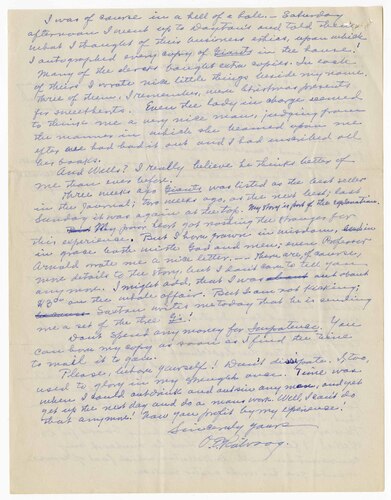 I was of course in a hell of a hole. — Saturday
afternoon I went up to Dayton's and told them
what I thought of their business ethics, upon which
I autographed every copy of Giants in the house!
Many of the clerks bought extra copies. In each
of theirs I wrote nice little things beside my name.
Three of them, I remember, were Christmas presents
for sweethearts. Even the lady in charge seemed
to think me a very nice man, judging from
the manner in which she beamed upon me
after we had had it out and I had inscribed all
her books.
And Wells? I really believe he thinks better of
me than ever before.
Three weeks ago Giants was listed as the best seller
in the Journal; two weeks ago, as the next best; last
Sunday it was again at the top. My story is part of the explanation.
My poor text got nothing the stranger for
this experience. But I have grown in wisdom,
in grace both with God and men, even Professor
Arnold wrote me a nice letter. — There are, of course,
more details to the story, but I don't care to tell you
anymore. I might add, that I was about out about
$3.00 on the whole affair. But I am not kicking;
Saxton writes me today that he is sending
me a set of the the G.!
Don't spend any money for Impatience. You
can have my copy as soon as I find the time
to mail it to you.
Please, behave yourself! Don't dissipate. I, too,
used to glory in my strength once. Time was
when I could outdrink and outsin any man, and yet
get up the next day and do a man's work. Well, I can't do
that anymore! Now you profit by my experience!
Sincerely yours
O. E. Rölvaag.